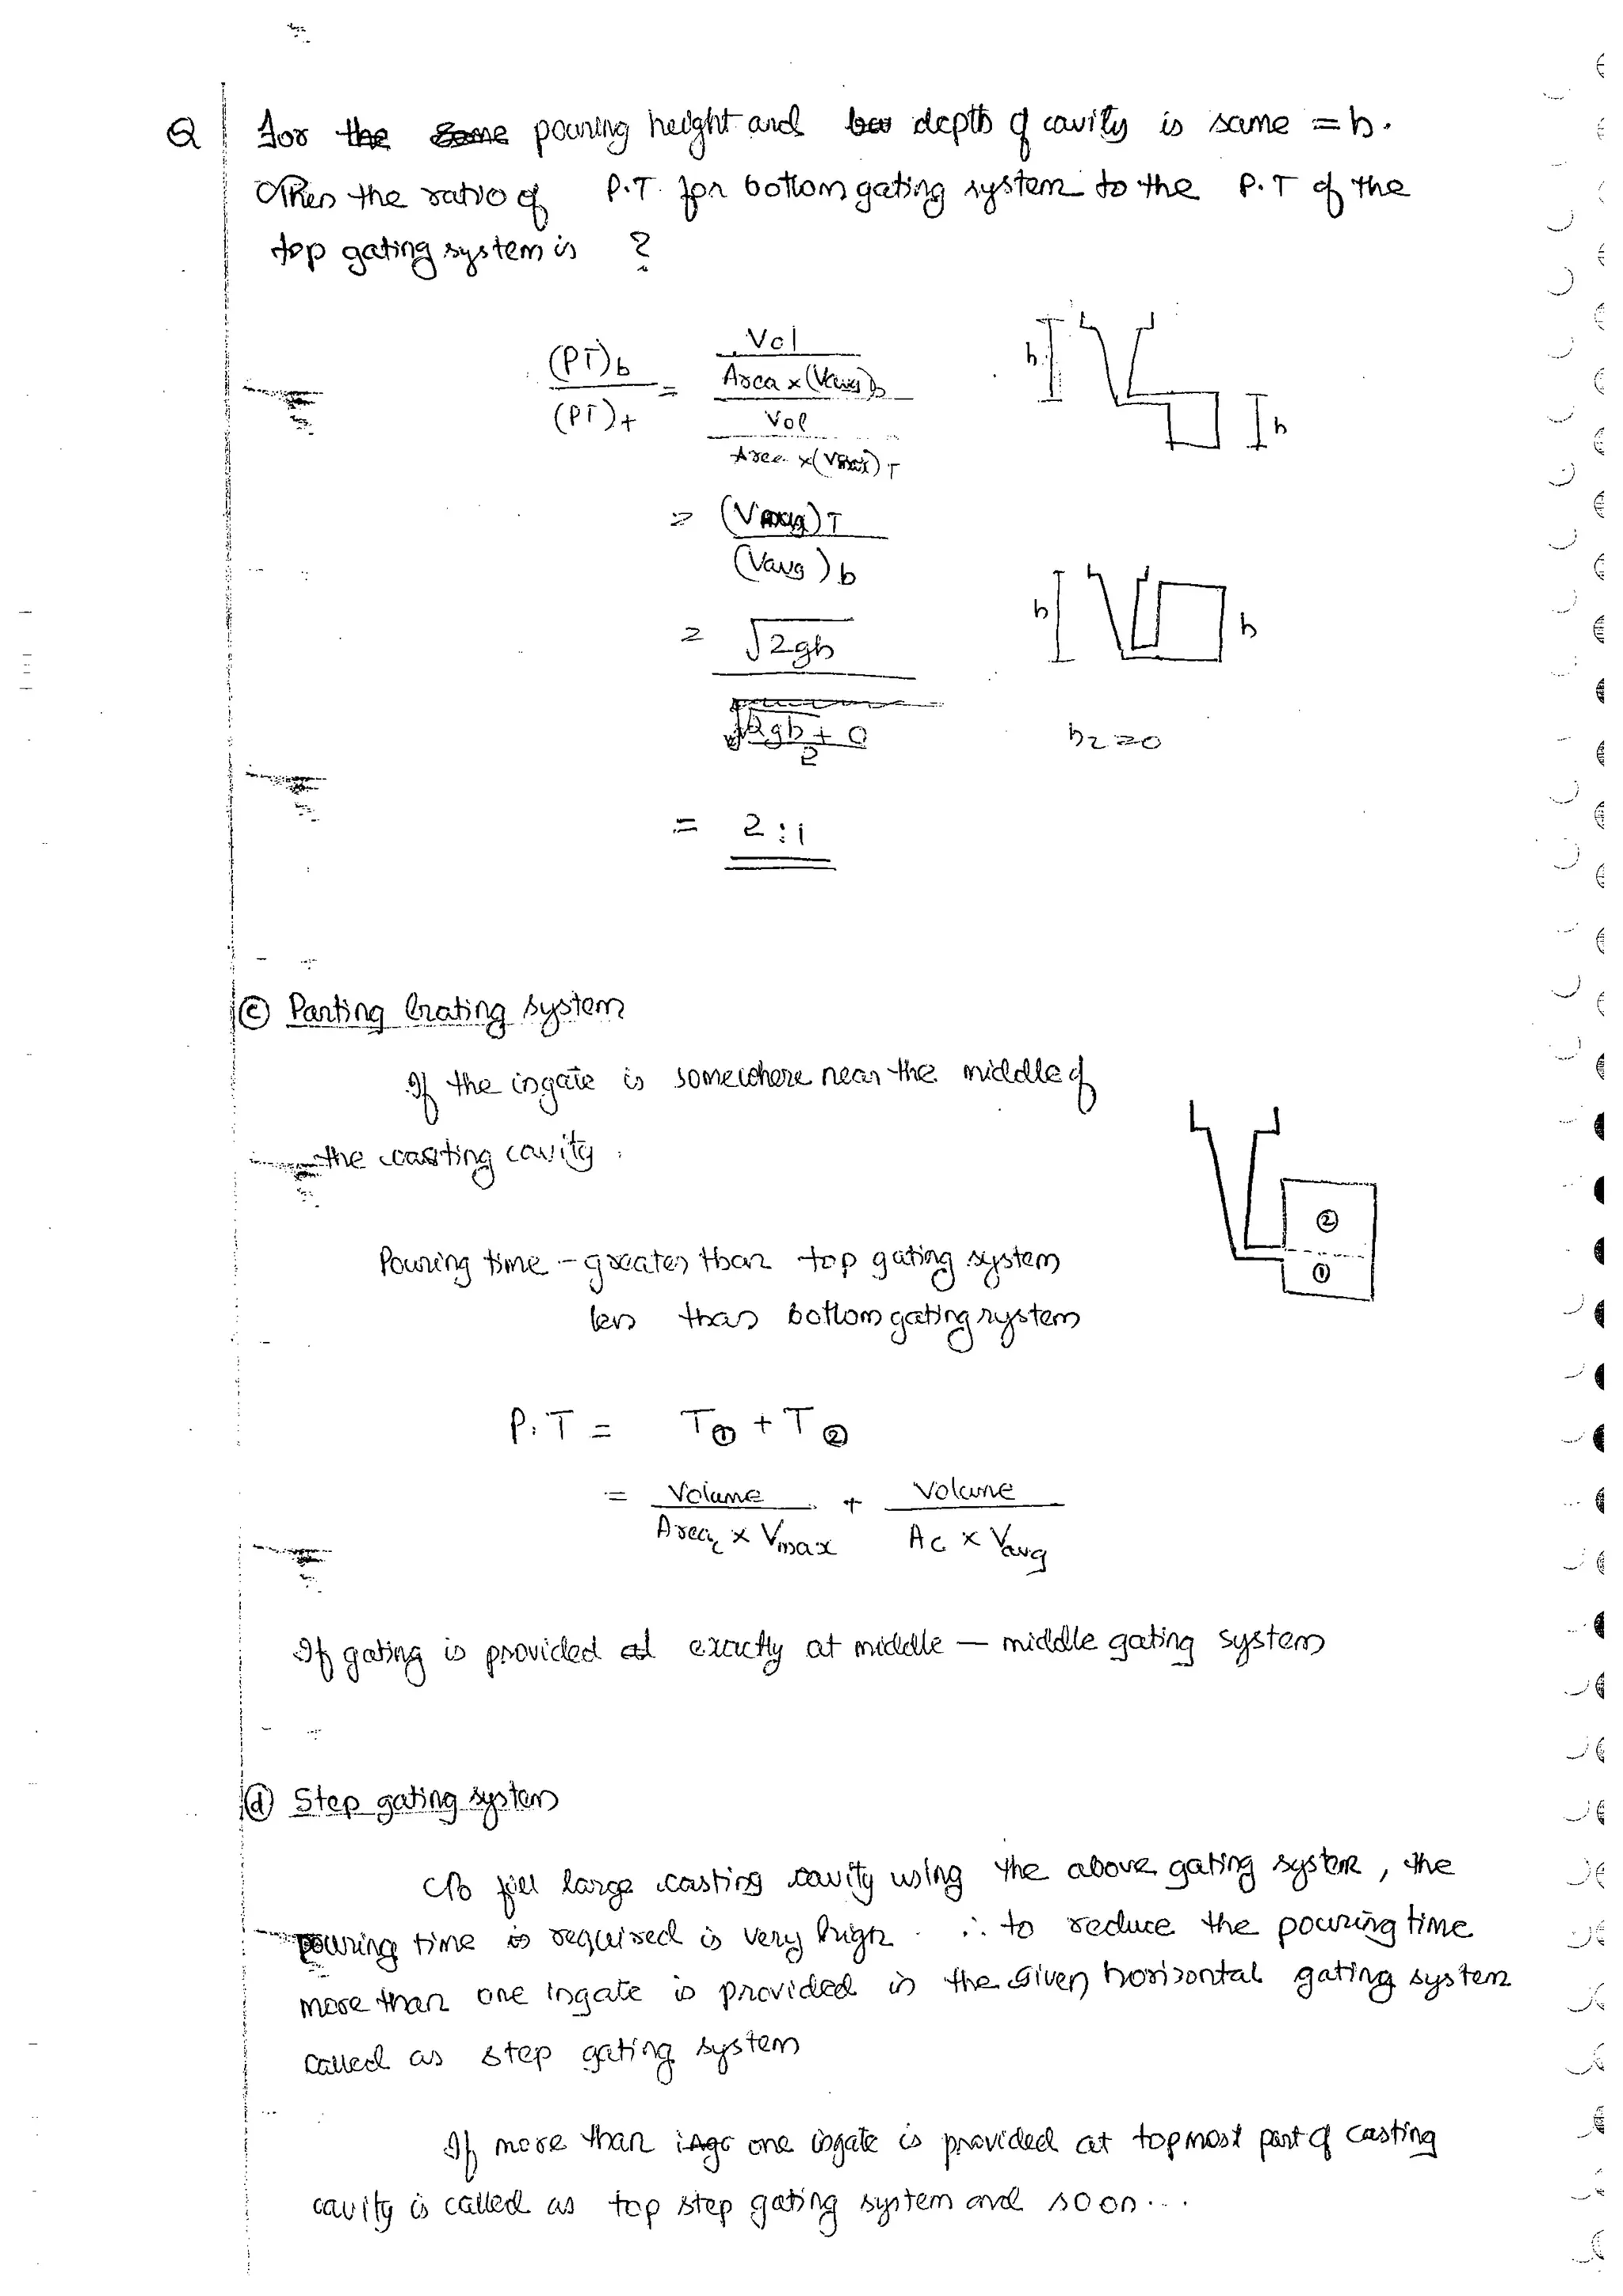 Q For the pouring height and depth of cavity is same = h.
Then the ratio of P.T. for bottom gating system to the P.T of the
top gating system is ?
(PT)b / (PT)t = (Vol / Area x (Vavg)b) / (Vol / Area x (Vmax)T)
= (Vmax)T / (Vavg)b
= √2gh / ((√2gh + 0) / 2)
= 2:1
h
h
h
h
h2 = 0
(c) Parting Grating system
If the ingate is somewhere near the middle of
the casting cavity.
② ①
Pouring time - greater than top gating system
less than bottom gating system
P.T = T① + T②
= Volume / Areac x Vmax + Volume / Ac x Vavg
If gating is provided at exactly at middle — middle gating system
(d) Step gating system
To fill large casting cavity using the above gating system, the
pouring time is required is very high. ∴ to reduce the pouring time
more than one ingate is provided in the given horizontal gating system
called as step gating system
If more than one ingate is provided at topmost part of casting
cavity is called as top step gating system and so on...